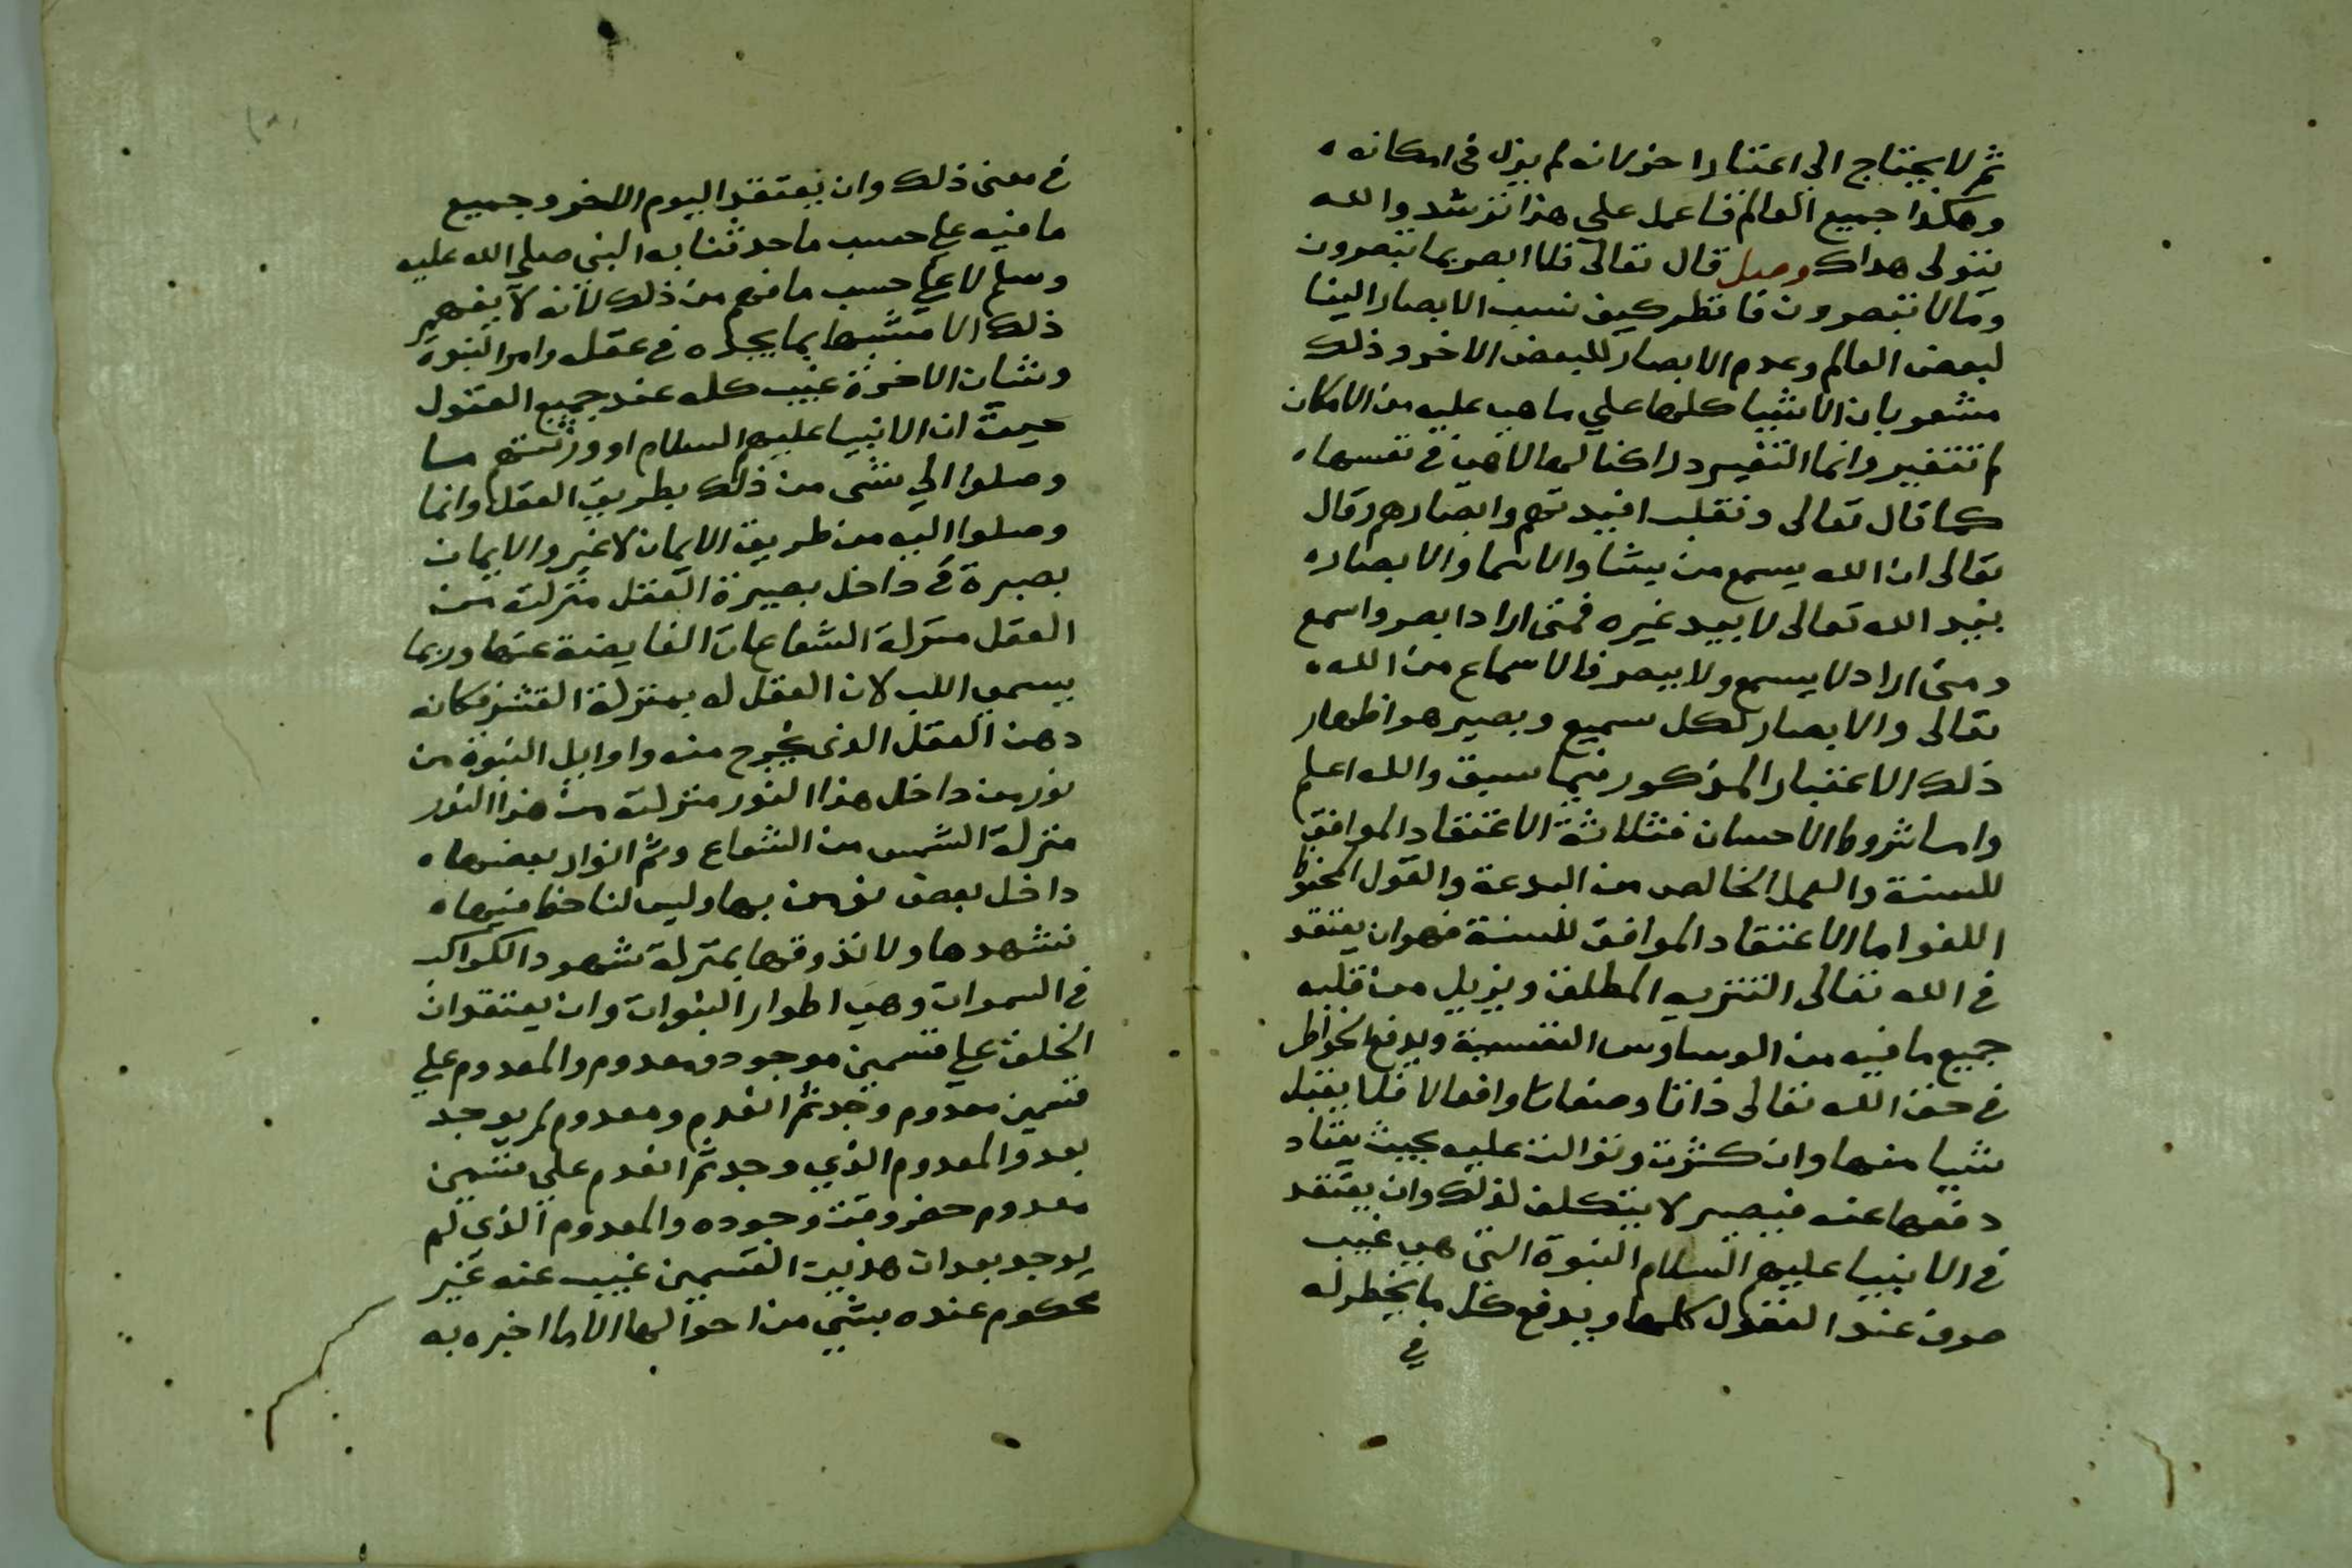 ثم لا يحتاج الى اعتنا واخر لانه لم يزل فى امكانه
وهكذا جميع العالم فاعمل على هذا ترشد والله
يتولى هداك وصل قال تعالى فلا ابصر بما تبصرون
وما لا تبصرون فانظر كيف نسب الابصار الينا
لبعض العالم وعدم الابصار للبعض الاخر وذلك
مشعر بان الاشيا كلها على ما هى عليه من الامكان
لم تتغير وانما التغيير دراكنا لها لا هى فى نفسها
كما قال تعالى ونقلب افيدتهم وابصارهم وقال
تعالى ان الله يسمع من يشا والاسما والابصار
بيد الله تعالى لا بيد غيره فمتى اراد ابصر واسمع
ومتى اراد لا يسمع ولا يبصر فالاسماع من الله
تعالى والابصار لكل سميع وبصير هو اظهار
ذلك الاعتبار المذكور فيما سبق والله اعلم
واما شروط الاحسان فثلاثة الاعتقاد الموافق
للسنة والعمل الخالص من البدعة والقول المحفوظ
اللغو اما الاعتقاد الموافق للسنة فهو ان يعتقد
فى الله تعالى التنزيه المطلق ويزيل من قلبه
جميع ما فيه من الوساوس النفسية ويدفع الخواطر
فى حق الله تعالى ذاتا وصفات وافعالا فلا يقبل
شيا منها وان كثرت وتوالت عليه بحيث يعتاد
دفعها عنه فيصير لا يتكلف لذلك وان يعتقد
فى الانبيا عليهم السلام النبوة التى هى غيب
صرف عند العقول كلها ويدفع كل ما يخطر له
فى
فى معنى ذلك وان يعتقد اليوم الاخر وجميع
ما فيه على حسب ما حدثنا به النبى صلى الله عليه
وسلم لا على حسب ما فهم من ذلك لانه لا يفهم
ذلك الا مشبها بما يجده فى عقله وامر النبوة
وشان الاخرة غيب كله عند جميع العقول
حيث ان الانبيا عليهم السلام او ورثتهم ما
وصلوا الى شى من ذلك بطريق العقل وانما
وصلوا اليه من طريق الايمان لا غير والايمان
بصيرة فى داخل بصيرة العقل منزلته من
العقل منزلة الشعاعات الفايضة عنها وربما
يسمى اللب لان العقل له بمنزلة القشر فكانه
دهن العقل الذى يخرج منه واوايل النبوة من
نور من داخل هذا النور منزلته من هذا النور
منزلة الشمس من الشعاع وثم انوار بعضها
داخل بعض نومن بها وليس لنا حظ فيها
نشهدها ولا نذوقها بمنزلة شهود الكواكب
فى السموات وهى اطوار النبوات وان يعتقد ان
الخلق على قسمين موجود ومعدوم والمعدوم على
قسمين معدوم وجد ثم انعدم ومعدوم لم يوجد
بعد والمعدوم الذي وجد ثم انعدم على قسمين
معدوم حضر وقت وجوده والمعدوم الذي لم
يوجد بعد ان هذين القسمين غيب عنه غير
محكوم عنده بشى من احوالها الا ما اخبره به